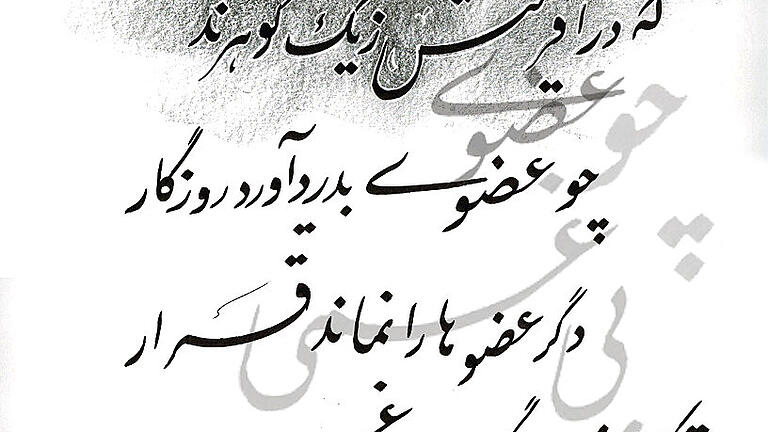 که در آفرینش ز یک گوهرند
چو عضوی بدرد آورد روزگار
دگر عضوها را نماند قرار
چو عضوی
بی غمی